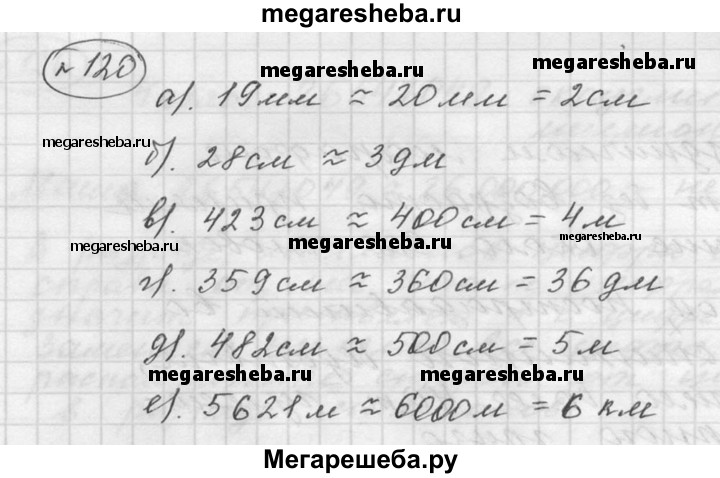 megaresheba.ru
№ 120
megaresheba.ru
megaresheba.ru
а). 19мм ≈ 20мм = 2см
megaresheba.ru
б). 28см ≈ 3дм
в). 423см ≈ 400см = 4м
megaresheba.ru
megaresheba.ru
megaresheba.ru
г). 359см ≈ 360см = 36дм
д). 482см ≈ 500см = 5м
megaresheba.ru
megaresheba.ru
е). 5621м ≈ 6000м = 6 км
Мегарешеба.ру